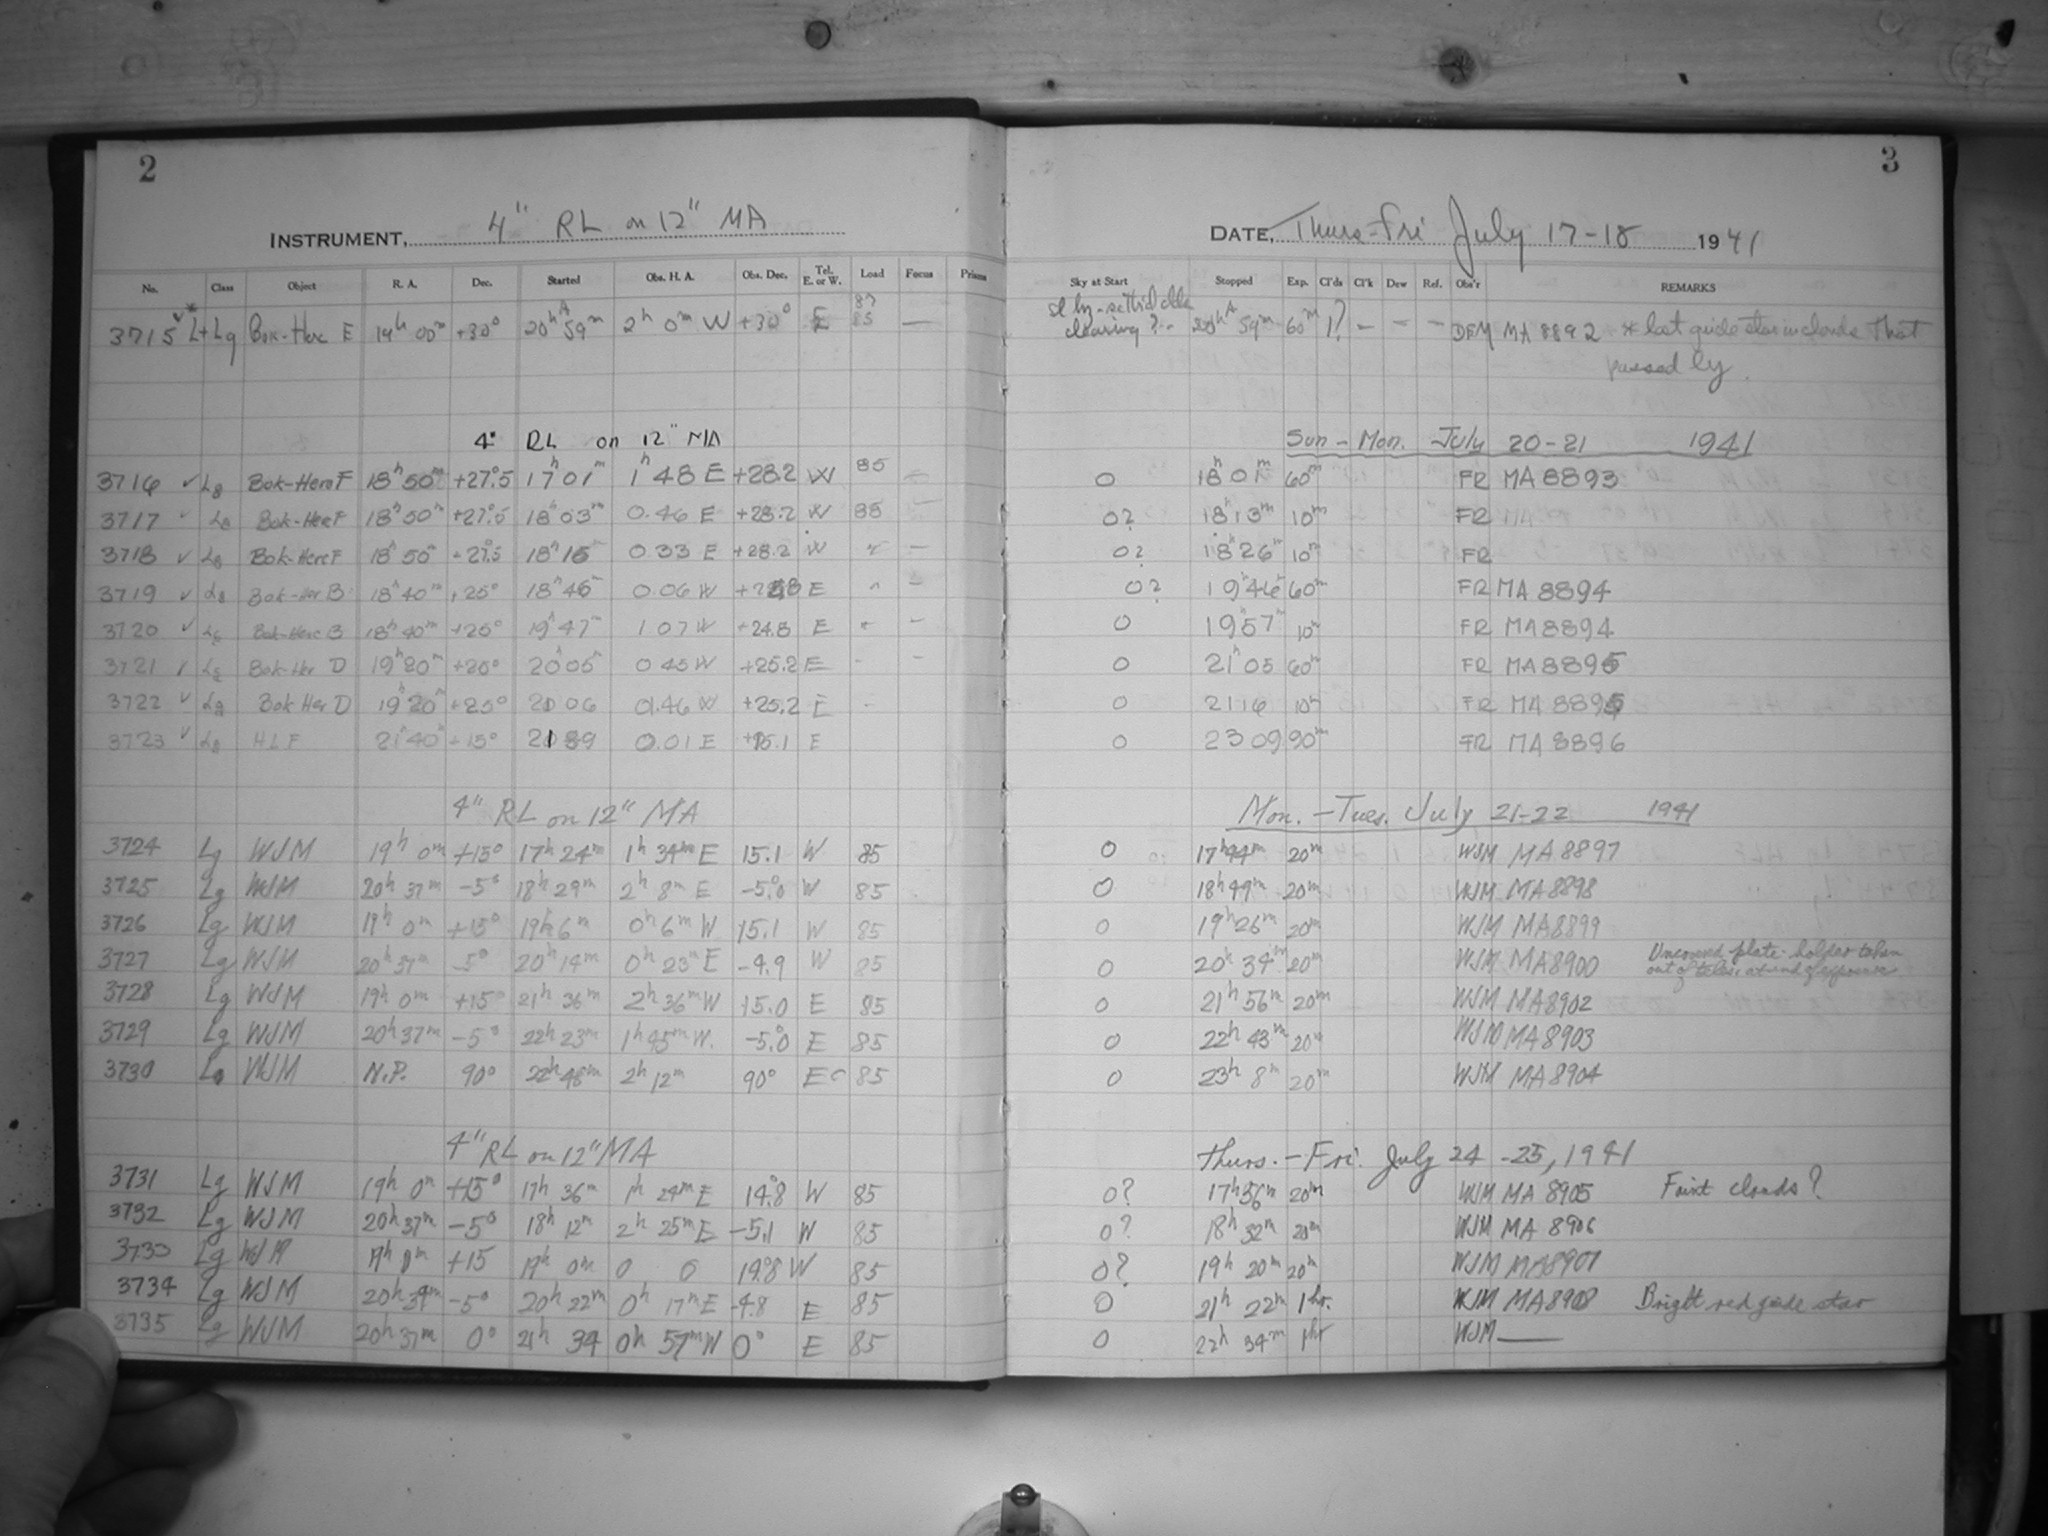 2
3
INSTRUMENT, 4" RL on 12" MA
DATE, Thurs-Fri July 17-18 1941
No. Class Object R. A. Dec. Started Obs. H. A. Obs. Dec. Tel. E. or W. Load Focus Prism Sky at Start Stopped Exp. Cl'ds Cl'k Dew Ref. Obs'r REMARKS
3715 L+Lg Bok-Herc E 19h 00m +30° 20h 59m 2h 0m W +30° E 85 — clearing? 20h 59m 60m 1? — — — DFM MA 8892 * lost guide star in clouds that
passed by.
4" RL on 12" MA Sun - Mon. July 20-21 1941
3716 Lg Bok-Herc F 18h 50m +27°.5 17h 01m 1h 48 E +28.2 W 85 0 18h 01m 60m FR MA 8893
3717 Lg Bok-Her F 18h 50m +27°.5 18h 03m 0.46 E +28.2 W 85 0? 18h 13m 10m FR
3718 Lg Bok-Herc F 18h 50m +27°.5 18h 16 0.33 E +28.2 W 0? 18h 26m 10m FR
3719 Lg Bok-Her B 18h 40m +25° 18h 46m 0.06 W E 0? 19h 46m 60m FR MA 8894
3720 Lg Bok-Herc B 18h 40m +25° 19h 47m 1 07 W +24.8 E 0 19 57 10m FR MA 8894
3721 Lg Bok-Her D 19h 20m +25° 20h 05m 0 45 W +25.2 E 0 21h 05 60m FR MA 8895
3722 Lg Bok Her D 19h 20m +25° 21 06 01.46 W +25.2 E 0 21 16 10m FR MA 8895
3723 Lg HLF 21h 40m +15° 21 39 0.01 E +15.1 E 0 23 09 90m FR MA 8896
4" RL on 12" MA Mon. - Tues. July 21-22 1941
3724 Lg WJM 19h 0m +15° 17h 24m 1h 34m E 15.1 W 85 0 17h 44m 20m WJM MA 8897
3725 Lg WJM 20h 37m -5° 18h 29m 2h 8m E -5.°0 W 85 0 18h 49m 20m WJM MA 8898
3726 Lg WJM 19h 0m +15° 19h 6m 0h 6m W 15.1 W 85 0 19h 26m 20m WJM MA 8899
3727 Lg WJM 20h 37m -5° 20h 14m 0h 23m E -4.9 W 85 0 20h 34m 20m WJM MA 8900 Uncovered plate-holder taken
out of teles. at end of exposure
3728 Lg WJM 19h 0m +15° 21h 36m 2h 36m W 15.0 E 85 0 21h 56m 20m WJM MA 8902
3729 Lg WJM 20h 37m -5° 22h 23m 1h 45m W. -5.°0 E 85 0 22h 43m 20m WJM MA 8903
3730 Lg WJM N.P. 90° 22h 48m 2h 12m 90° E 85 0 23h 8m 20m WJM MA 8904
4" RL on 12" MA Thurs. - Fri. July 24 -25, 1941
3731 Lg WJM 19h 0m +15° 17h 36m 1h 24m E 14.°8 W 85 0? 17h 56m 20m WJM MA 8905 Faint clouds?
3732 Lg WJM 20h 37m -5° 18h 12m 2h 25m E -5.1 W 85 0? 18h 32m 20m WJM MA 8906
3733 Lg WJM 19h 0m +15 19h 0m 0 0 14.°8 W 85 0? 19h 20m 20m WJM MA 8907
3734 Lg WJM 20h 39m -5° 20h 22m 0h 17m E -4.8 E 85 0 21h 22m 1hr. WJM MA 8908 Bright red guide star
3735 Lg WJM 20h 37m 0° 21h 34 0h 57m W 0° E 85 0 22h 34m 1hr WJM —